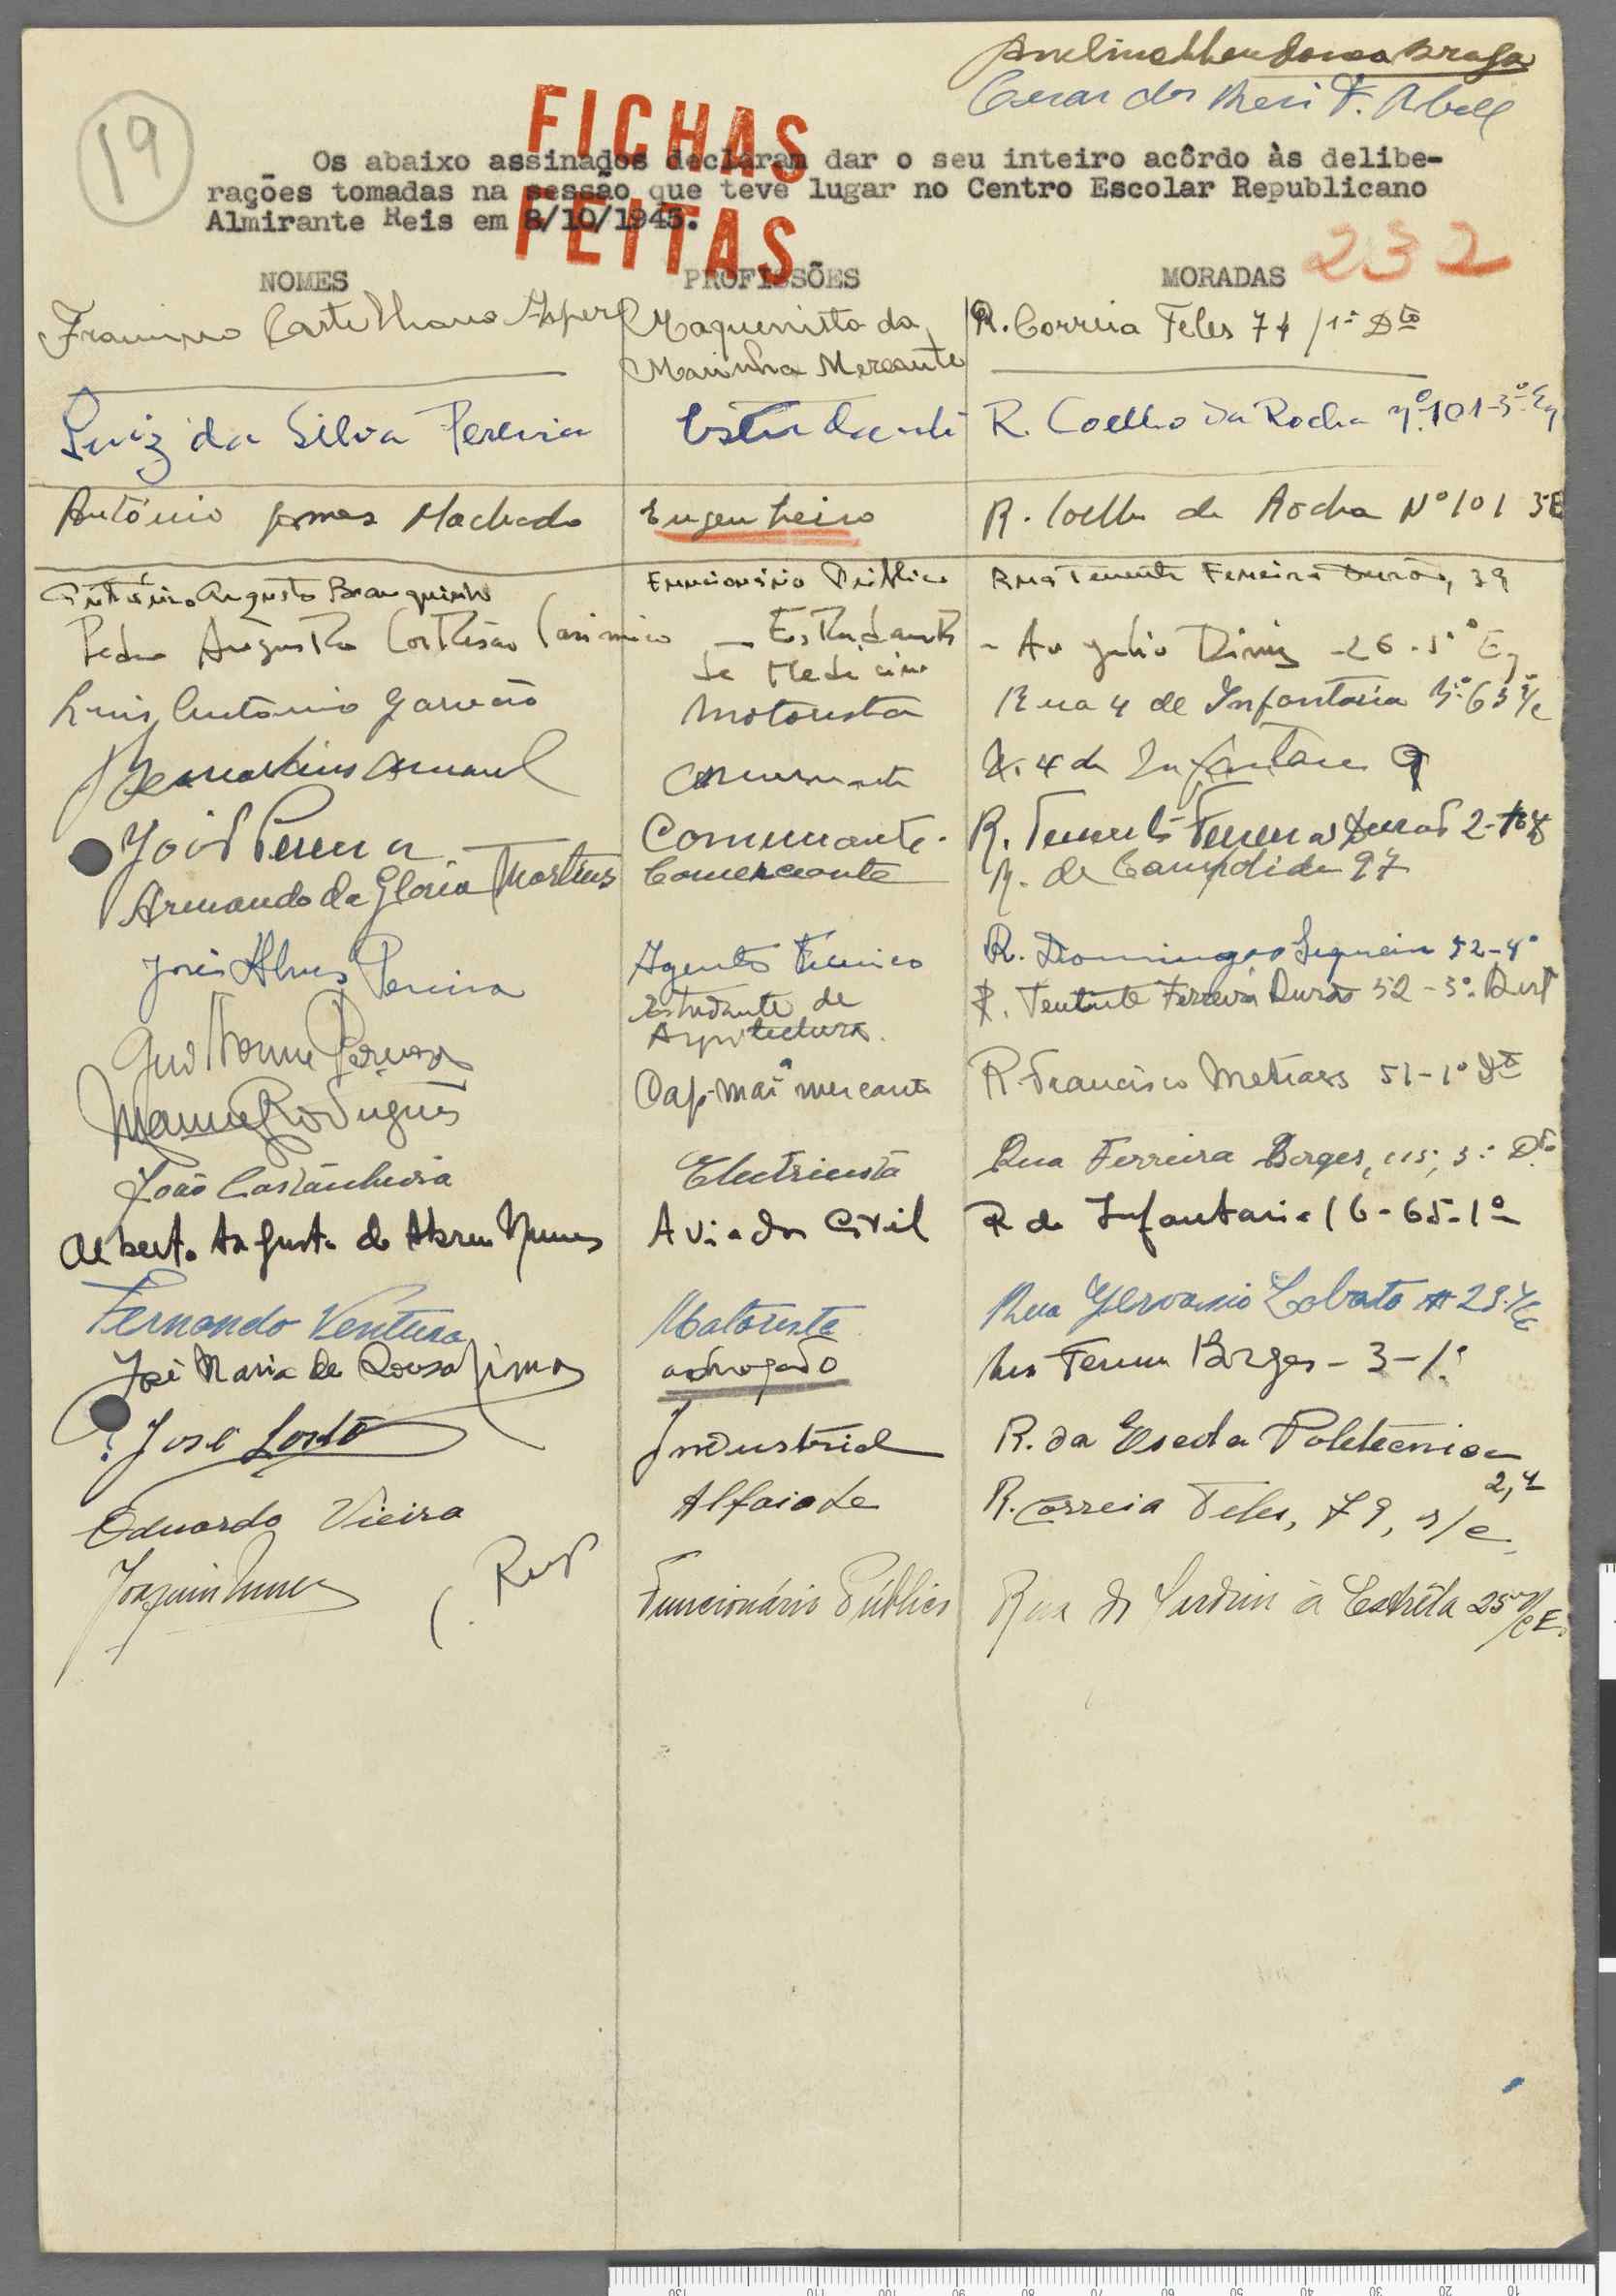 Braga
Cesar dos Reis F.
19
FICHAS
FEITAS
Os abaixo assinados declaram dar o seu inteiro acôrdo às delibe-
rações tomadas na sessão que teve lugar no Centro Escolar Republicano
Almirante Reis em 8/10/1945.
232
NOMES PROFISSÕES MORADAS
Castelhano Maquenista da R. Correia Teles 74 / 1º Dto
Marinha Mercante
Luiz da Silva Pereira Estudante R. Coelho da Rocha nº 101-3º Eq
António Gomes Machado Engenheiro R. Coelho da Rocha Nº 101 3E
António Augusto Branquinho Funcionário Público Rua Tenente Ferreira Durão, 39
Pedro Augusto Cortesão Casimiro - Estudante - Av Julio Diniz - 26 - Eq
de Medicina
Luis António Garvão Motorista Rua 4 de Infantaria Nº 63 r/c
Comerciante R. 4 de Infantari 9
José Pereira Comerciante. R. Tenente Ferreira Durão 2-
Armando da Gloria Martins Comerciante R. de Campolide 97
José Alves Pereira Agente Técnico R. Domingos Sequeira 52-4º
Estudante de R. Tentente Ferreira Durão 52 - 3º. Dirt
Arquitectura.
Guilherme
Manuel Rodrigues Cap. mar.ª mercante R. Francisco Metrass 51-1º Dto
João Castanheira Electricista Rua Ferreira Borges, 115, 3º Dto
Alberto Augusto de Abreu Nunes Aviador Civil R de Infantaria 16-65-1º
Fernando Ventura Motorista Rua Gervasio Lobato 23 r/c
José Maria de Sousa advogado Rua Ferreira Borges - 3-1º
José Industrial R. da Escola Politecnica
2,4
Eduardo Vieira Alfaiate R. Correia Teles, 79, r/c
Joaquim Nunes Funcionário Público Rua do Jardim à Estrêla 25 r/c E.